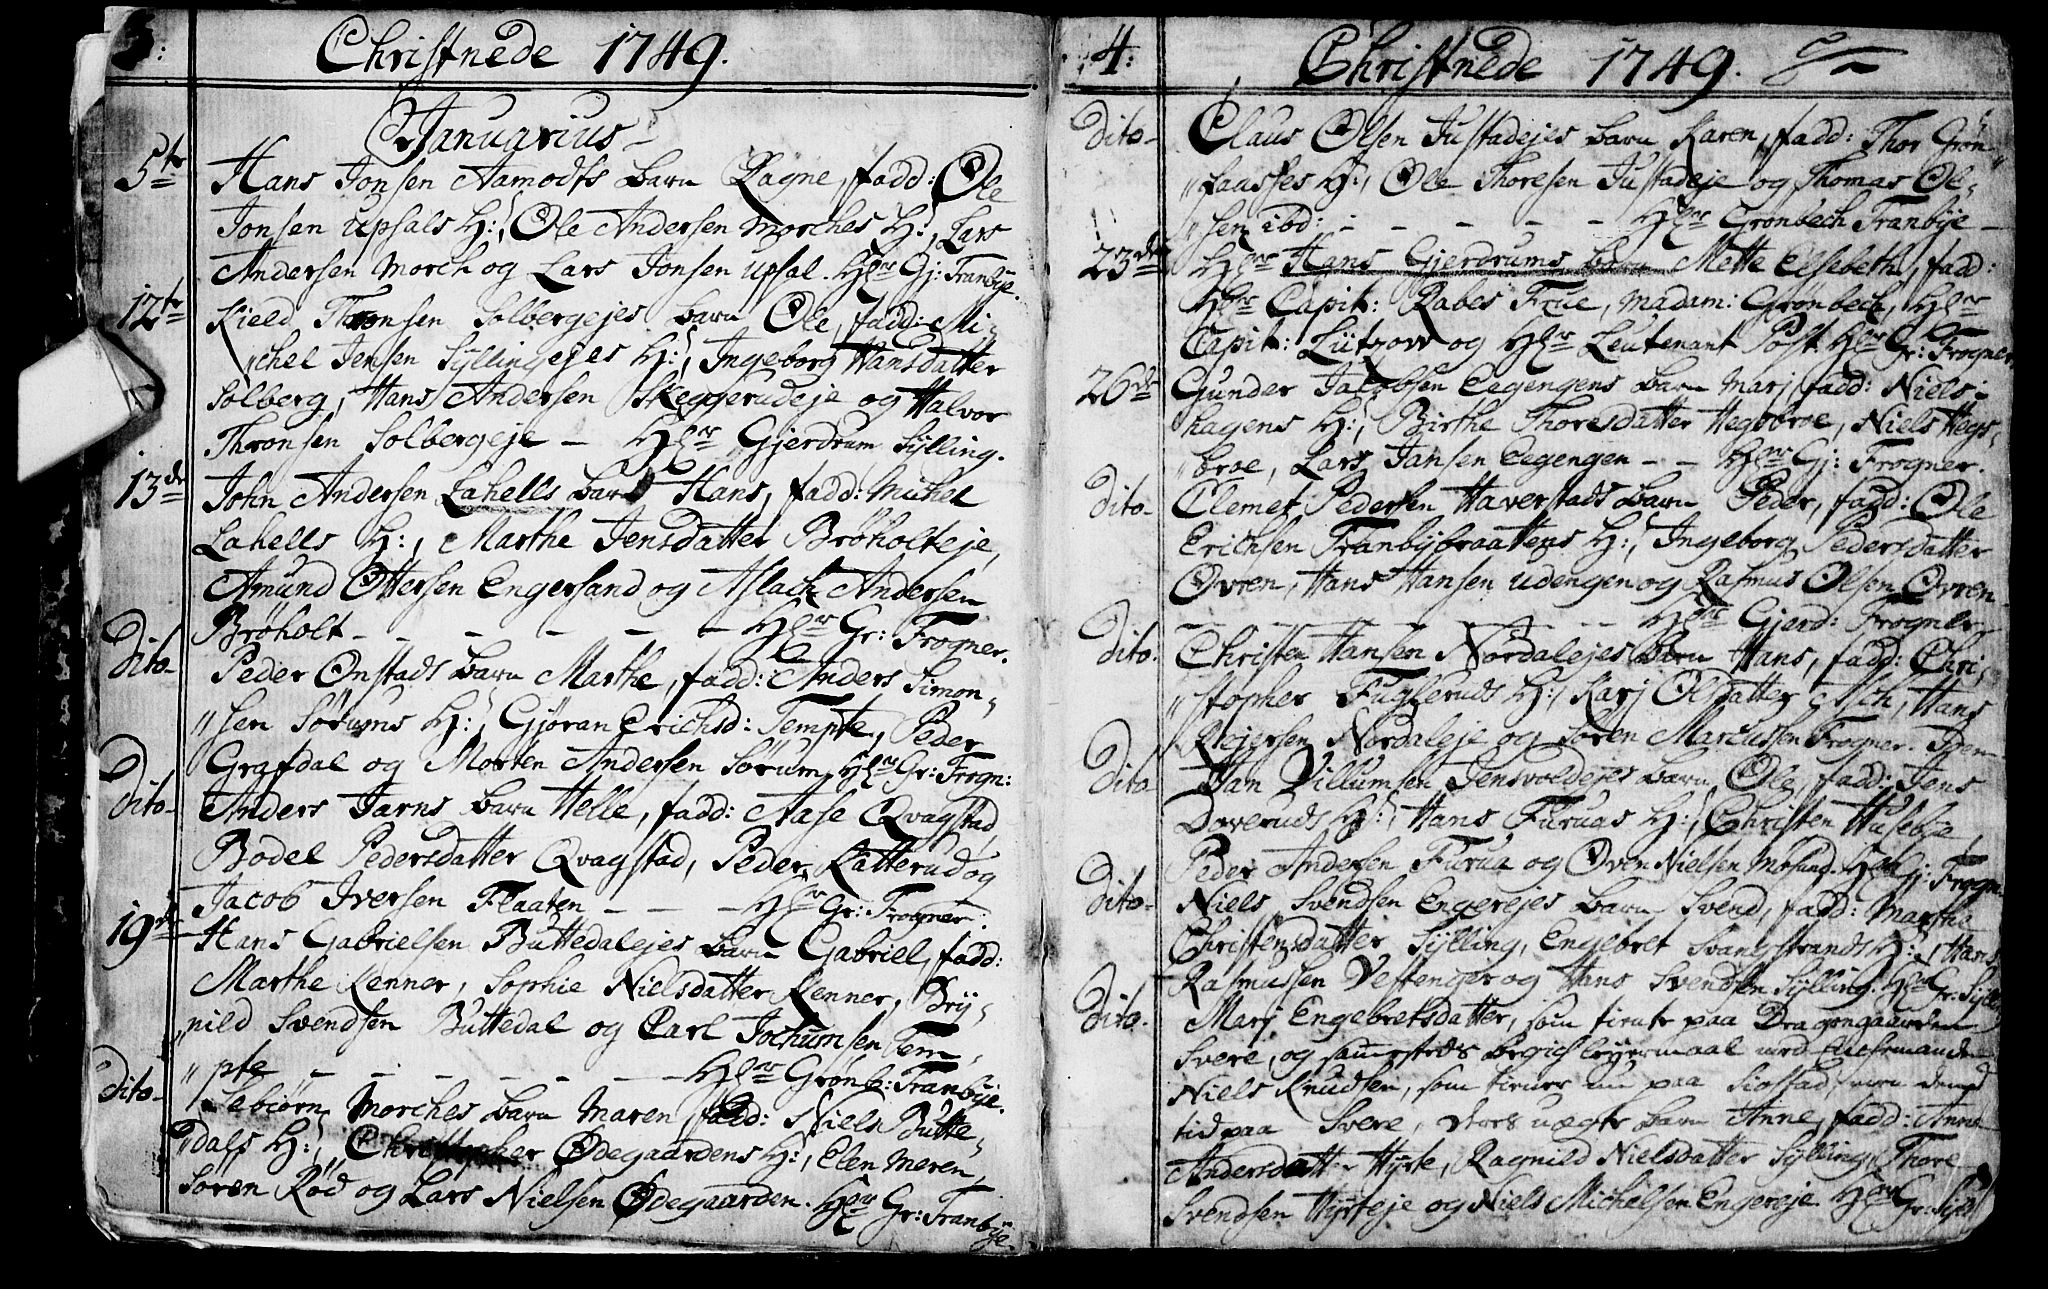 3:
Christnede 1749.
Januarius
5te Hans Jonsen Aamodts barn Ragne, fadd: Ole
Jonsen Upsals H:, Ole Andersen Morches H:, Lars
Andersen Morch og Lars Jonsen Upsal. Hr Gj: Tranbÿe.
12te Kield Thronsen Solbergejes barn Ole, fadd: Mi„
„chel Jensen Sÿllingejes H:, Ingeborg Hansdatter
Solberg, Hans Andersen Skeggerudeje og Halvor
Thronsen Solbergeje – Hr Gjerdrum Sÿlling.
13de John Andersen Lahells barn Hans, fadd: Michel
Lahells H:, Marthe Jensdatter Brøholteje,
Amund Ottersen Engersand og Aslach Andersen
Brøholt – – – – – – Hr Gr: Frogner.
Dito – Peder Onstads barn Marthe, fadd: Anders Simon„
„sen Sørums H:, Gjøran Erichsd: Tempte, Peder
Grafdal og Morten Andersen Sørum, Hr Gr: Frogn:
Dito – Anders Jarns barn Helle, fadd: Aase Qvagstad,
Bodel Pedersdatter Qvagstad, Peder Ratterud og
Jacob Iversen Flaaten – – – Hr Gr: Frogner:
19de Hans Gabrielsen Buttedalejes barn Gabriel, fadd:
Marthe Renner, Sophie Nielsdatter Renner, Brÿ„
„nild Svendsen Buttedal og Carl Jochumsen Tem„
„pte – – – – – – – Hr Grønb: Tranbÿe.
Dito – Esebiørn Morches barn Maren, fadd: Niels Butte„
„dals H:, Christopher Ødegaardens H:, Elen Meren,
Søren Rød og Lars Nielsen Ødegaarden. Hr Gr: Tranbÿe.
4:
Christnede 1749.
Dito – Claus Olsen Justadejes barn Karen, fadd: Thor Grøn„
„laasses H:, Ole Thoresen Justadeje og Thomas Ol„
„sen ibd: – – – – – Hr Grønbech Tranbÿe –
23de Hr Hans Gjerdrums barn Mette Elsebeth, fadd:
Hr Capit: Rabes Frue, Madam: Grønbech, Hr
Capit: Lützow og Hr Leutenant Post. Hr Gr: Frogner.
26de Gunder Jacobsen Eegengens barn Marj, fadd: Niels
hagens H:, Birthe Thoresdatter Hegsbroe, Niels Hegs„
„broe, Lars Jansen Eegengen – – Hr Gj: Frogner.
Dito – Clemet Pedersen Haverstads barn Peder, fadd: Ole
Erichsen Tranbÿbraatens H:, Ingeborg Pedersdatter
Øvren, Hans Hansen Udengen og Rasmus Olsen Øvren
– – – – – – Hr Gjerd: Frogner
Dito. Christen Hansen Nordalejes barn Hans, fadd: Chri„
„stopher Fugleruds H:, Karj Olsdatter Asch, Hans
Rejersen Nordaleje og Søren Marcussen Frogner. Idem
Dito Dan Villumsen Jensvoldejes barn Ole, fadd: Jens
Daveruds H:, Hans Furuas H:, Christen Husebÿe,
Peder Andersen Furua og Oven Nielsen Mosund. Hr Gj: Frogn.
Dito – Niels Svendsen Engerejes barn Svend, fadd: Marthe
Christensdatter Sÿlling, Engebret Svangstrands H:, Hans
Rasmussen Vestenger og Hans Svendsen Sÿlling. Hr Gr: Sÿll:
Dito. Marj Engebretsdatter, som tiente paa Dragongaarden
Svere, og sammesteds begich leÿermaal med Enchemanden
Niels Knudsen, som tiener nu paa Kiostad, men dend
tid paa Svere, deres uægte barn Anne, fadd: Anne
Andersdatter Hÿrte, Ragnild Nielsdatter Sÿlling, Thore
Svendsen Hÿrteje og Niels Michelsen Engereje. Hr Gr: Sÿll: